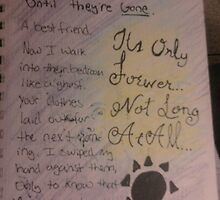 Until they're Gone.
A best friend.
Now I walk
into their bedroom
like a ghost.
your clothes
laid out for
the next morn
ing. I swiped my
hand against them,
Only to know that
Its Only
Forever...
Not Long
At All...